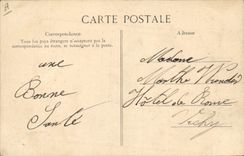 CARTE POSTALE
Correspondance
Tous les pays étrangers n'acceptent pas la
correspondance au recto, se renseigner à la poste.
Adresse
une
Bonne
Santé
Madame
Marthe
Hôtel de Rome
Vichy